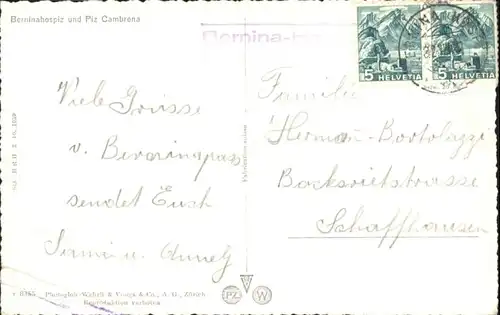 Berninahospiz und Piz Cambrena
Bernina-H
5 HELVETIA
5 HELVETIA
Viele Grüsse
v. Berninapass
sendet Euch
Sami u. Anneli
Familie
Herman-Bortolazzi
Bocksrietstrasse
Schaffhausen
8385 Photoglob-Wehrli & Vouga & Co., A. G., Zürich
Reproduktion verboten
PZ
W